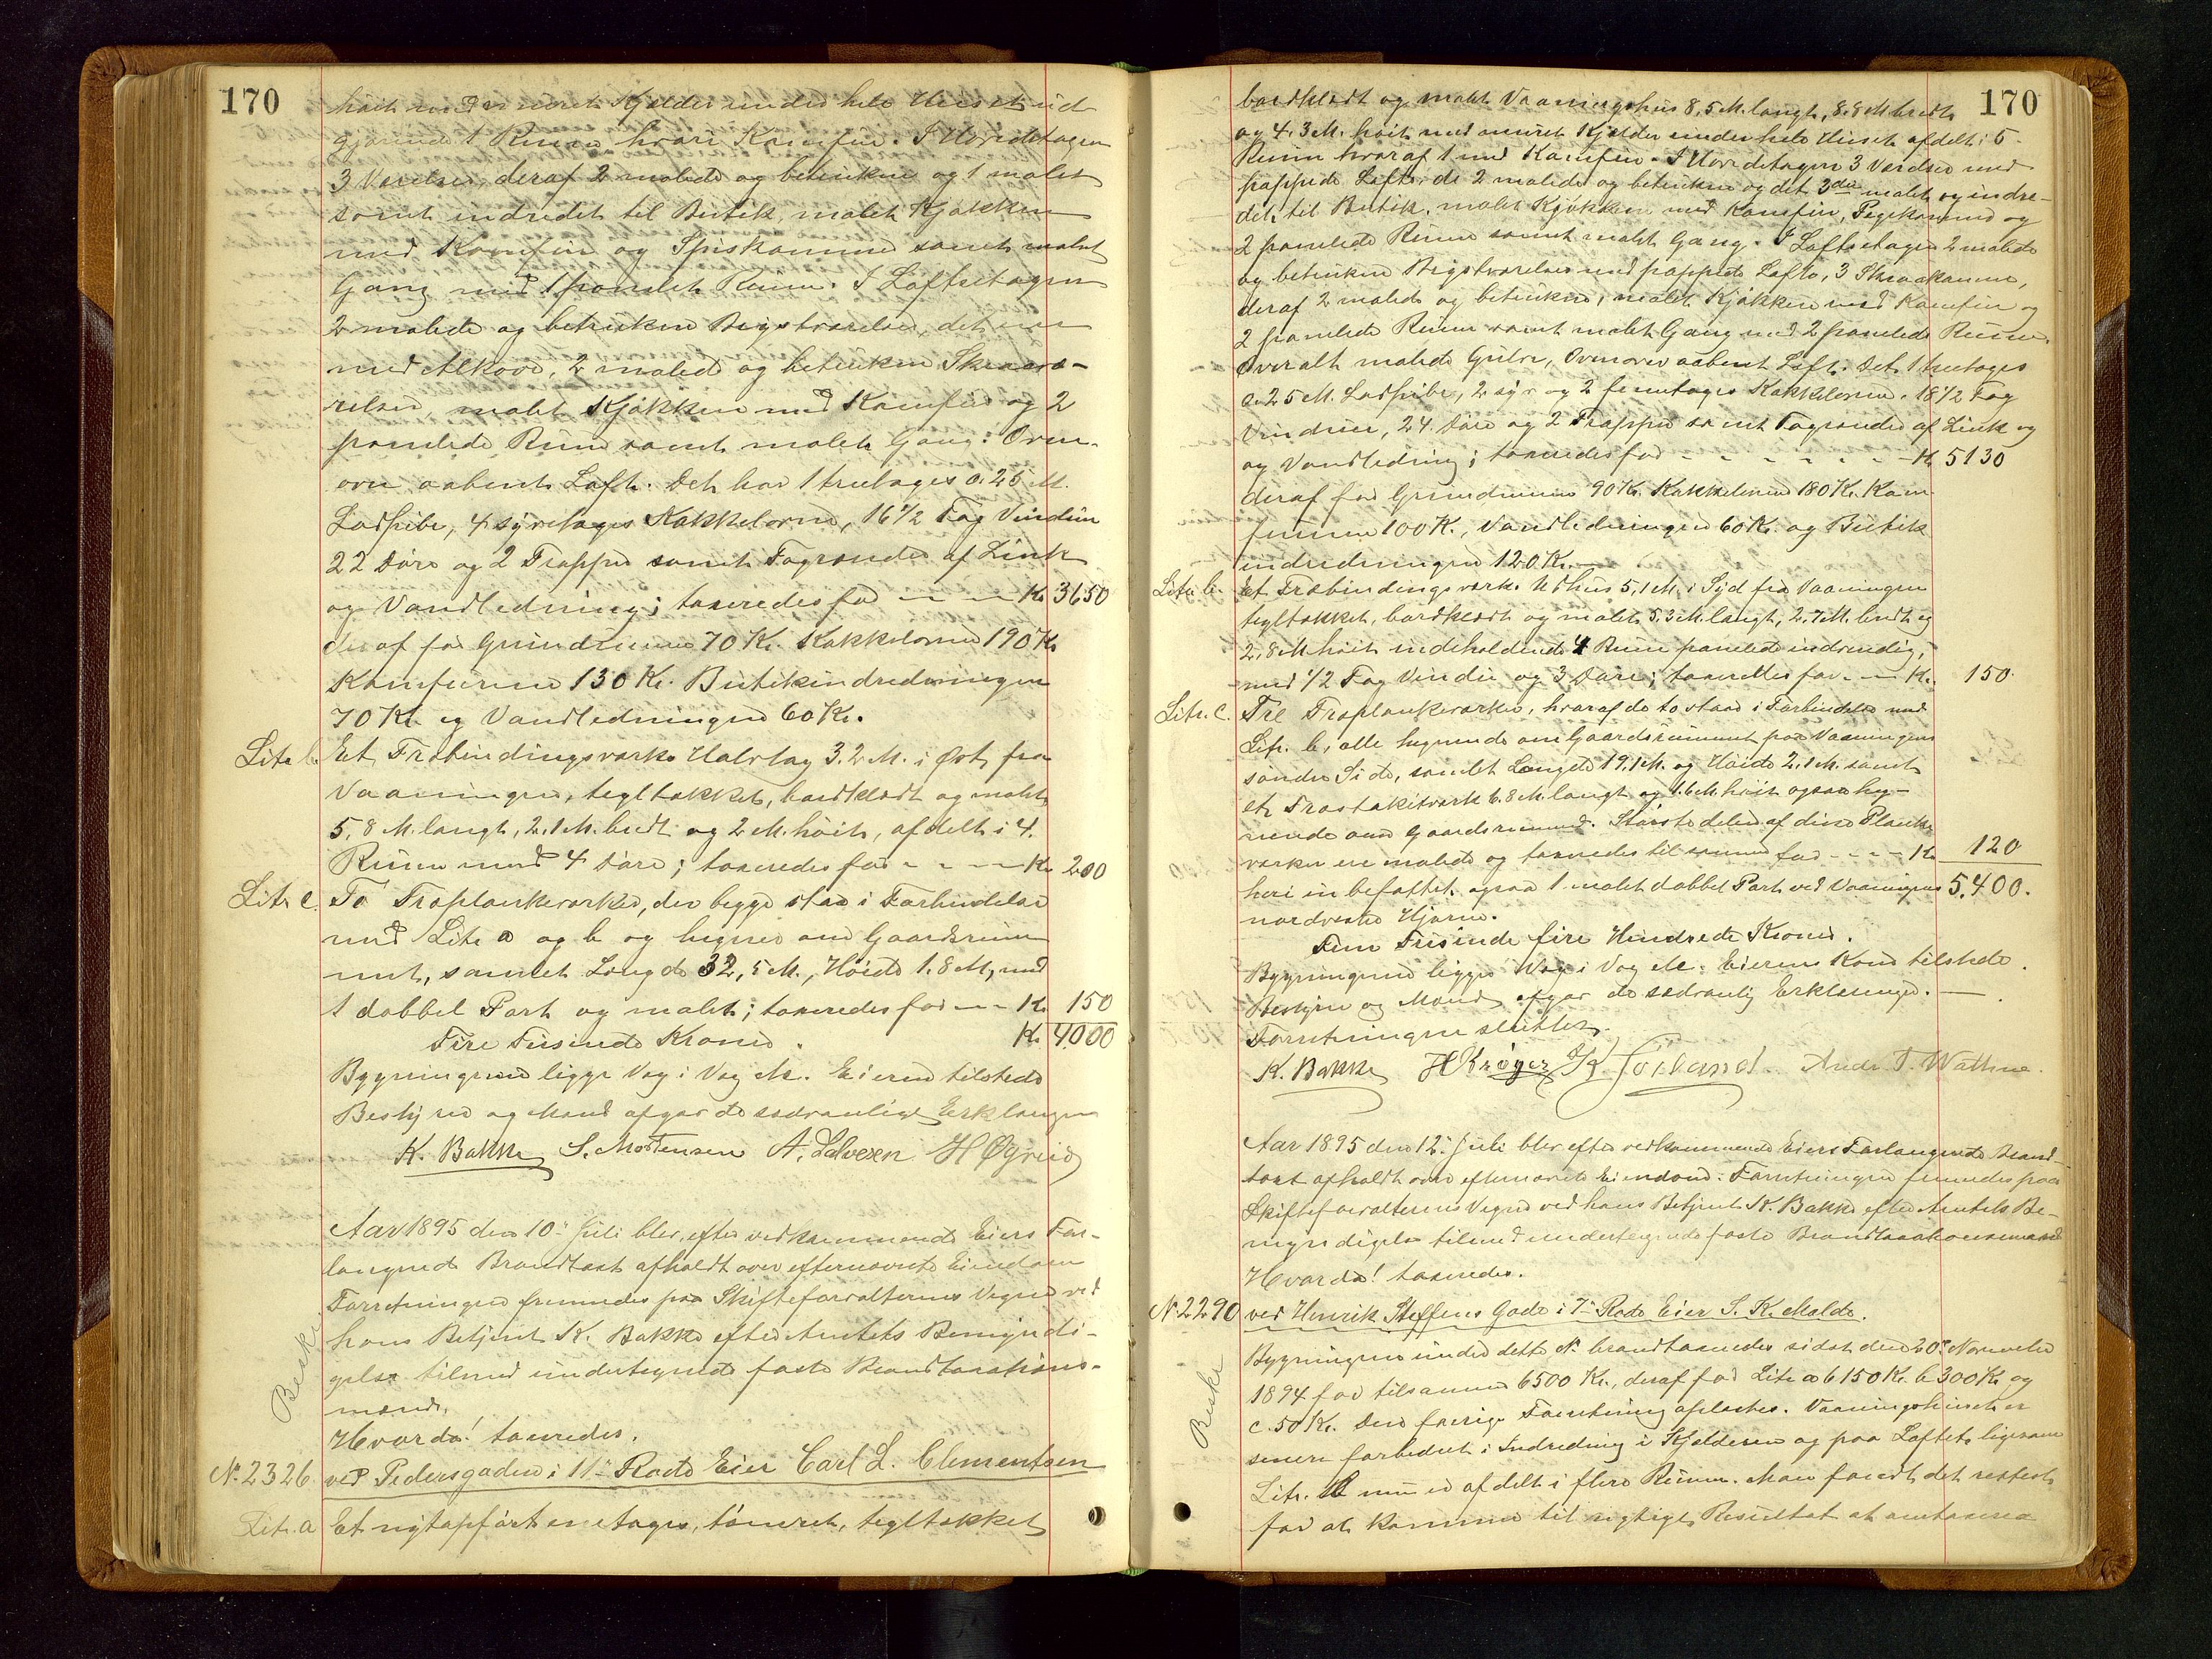 170
høit med muret Kjelder under hele Huset ud
gjørende 1 Rum hvori Komfur. I Hovedetagen
3 Værelser, deraf 2 malede og betrukne og 1 malet
samt indredet til Butik, malet Kjøkken
med Komfur og Spiskammer samt malet
Gang med 1 panelet Rum. I Loftsetagen
2 malede og betrukne Bigstværelser, det ene
med Alkove, 2 malede og betrukne Skraavæ-
relser, malet Kjøkken med Komfur og 2
panelede Rum samt malet Gang. Oven-
over aabent Loft. Det har 1 treetages a. 25 M.
Ladpibe, 4 syvetages Kakkelovne, 16 1/2 Fag Vinduer
22 Døre og 2 Trapper samt Tagrender af Zink
og Vandledning; taxeredes for - - - Kr. 3650
deraf for Grundmuren 70 Kr. Kakkelovne 190 Kr
Komfurene 130 Kr. Butikindredningen
70 Kr. og Vandledningen 60 Kr.
Litr b. Et Træbindingsværks Halvtag 3.2 M. i Øst fra
Vaaningen, tegltækket, bordklædt og malet
5,8 M. langt, 2.1 M. bredt og 2 M. høit, afdelt i 4.
Rum med 4 Døre; taxeredes for - - - Kr. 200
Litr c. To Træplankeværker, der begge staa i Forbindelse
med Litr a og b og hegner om Gaardsrum
met, samlet Længde 32,5 M., Høide 1.8 M, med
1 dobbel Port og malet; taxeredes for - - Kr. 150
Fire Tusinde Kroner. Kr. 4000
Bygningerne ligge Væg i Væg M. Eieren tilstede
Bestyrer og Mænd afgav de sædvanlige Erklæringer
K. Bakke S. Mortensen A. Halvorsen H Øgreid
Aar 1895 den 10. Juli blev, efter vedkommende Eiers For-
langende Brandtaxt afholdt over efternævnte Eiendom
Forretningen fremmedes paa Skifteforvalterens Vegne ved
hans Betjent K. Bakke efter Amtets Bemyndi-
gelse tilmed undertegnede faste Brandtaxations-
mænd.
Beskr
Hvorda! taxeredes.
No. 2326. ved Pedersgaden i 11te Rode Eier Carl L. Clementsen
Litr. a Et nyt opført enetages, tømret, tegltækket
170
bordklædt og malet Vaaningshus 8,5 M. langt, 8.8 M bredt
og 4.3 M. høit med muret Kjelder under hele Huset afdelt i 5
Rum hvoraf 1 med Komfur. I Hovedetagen 3 Værelser med
pappede Lofter, de 2 malede og betrukne og det 3die malet og indre-
det til Butik. malet Kjøkken med Komfur, Pigekammer og
2 panelede Rum samt malet Gang. I Loftsetagen 2 malede
og betrukne Bigstværelser med pappede Lofter, 3 Skraakammer,
deraf 2 malede og betrukne, malet Kjøkken med Komfur og
2 panelede Rum samt malet Gang med 2 panelede Rum.
Overalt malede Gulve, Ovenover aabent Loft. Det 1 treetages
a. 25 M. Ladpibe, 2 syv og 2 femetages Kakkelovne. 18 1/2 Fag
Vinduer, 24. Døre og 2 Trapper samt Tagrender af Zink og
og Vandledning; taxeredes for - - - - - - - Kr. 5130
deraf for Grundmuren 90 Kr. Kakkelovne 180 Kr. Kom
furene 100 K., Vandledningen 60 Kr. og Butik
indredningen 120 Kr.
Litr. b. Et Træbindingsværks Udhus 5,1 M. i Syd fra Vaaningen
tegltækket, bordklædt og malet 5.3 M. langt, 2.7 M. bredt og
2,8 M høit indeholdende 4 Rum panelede indvendig,
med 1/2 Fag Vindu og 3 Døre; taxeredes for - - Kr. 150.
Litr. C. Tre Træplankeværker, hvoraf de to staar i Forbindelse med
Litr. b, alle hegnende om Gaardsrummet paa Vaaningens
søndre Side, samlet Længde 19.1 M. og Høide 2,1 M. samt
et Træstakitværk 6.8 M. langt og 1.6 M. høit ogsaa heg-
nende om Gaardsrummet. Største delen af disse Planke
værker ere malede og taxeredes til samme for - - - Kr. 120
heri indbefattet ogsaa 1 malet dobbel Port ved Vaaningens 5,400.
nordvestre Hjørne.
Fem Tusinde fire Hundrede Kroner.
Bygningerne ligger Væg i Væg M. Eierens Kone tilstede.
Bestyrer og Mænd afgav de sædvanlig Erklæringer.
Forretningen sluttet.
K. Bakke H Krøger K. Førland. Andr. T. Wathne.
Aar 1895 den 12. Juli blev efter vedkommende Eiers Forlangende Brand-
taxt afholdt over efternævnte Eiendom. Forretningen fremmedes paa
Skifteforvalterens Vegne ved hans Betjent K. Bakke efter Amtets Be-
myndigelse tilmed undertegnede faste Brandtaxationsmænd
Hvorda! taxeredes.
No. 2290 ved Henrik Steffens Gade i 7de Rode Eier S. K. Malde.
Beskr
Bygningerne under dette No. brandtaxeredes sidst den 20. November
1894 for tilsammen 6500 Kr., deraf for Litr a 6150 Kr. b 300 Kr og
c. 50 Kr. Den forrige Forretning oplæstes. Vaaningshuset er
senere forbedret i Indredning i Kjelderen og paa Loftet, ligesom
Litr. b nu er afdelt i flere Rum. Man fandt det rettest
for at komme til rigtigt Resultat at omtaxere